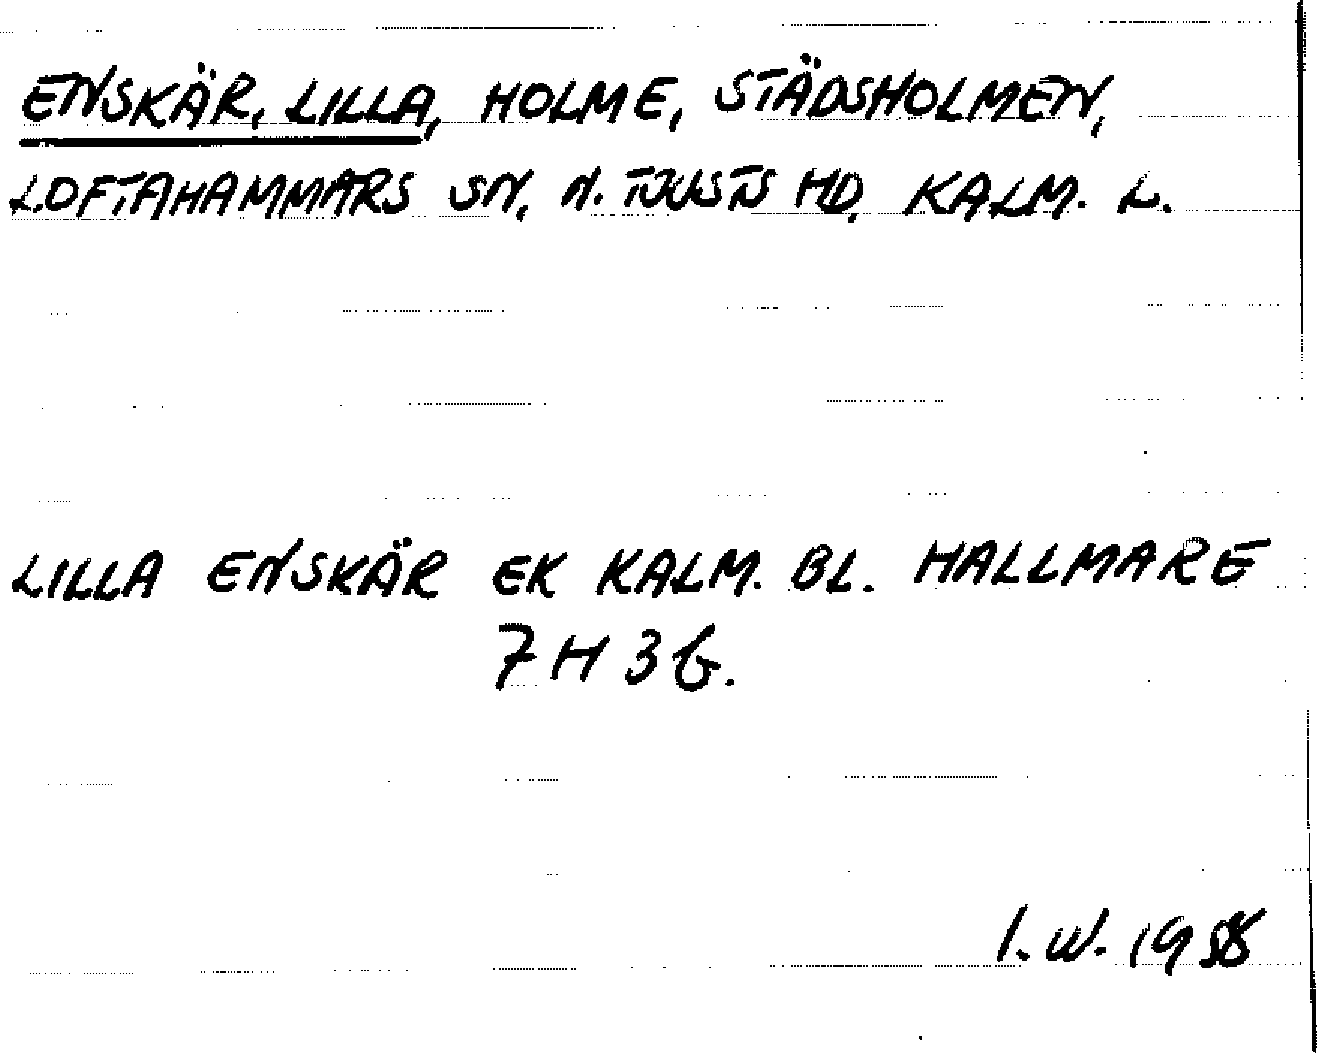 ENSKÄR, LILLA, HOLME, STÄDSHOLMEN,
LOFTAHAMMARS SN, N. TJUSTS HD, KALM. L.
LILLA ENSKÄR EK KALM. BL. HALLMARE
7 H 3 b.
I. W. 1958